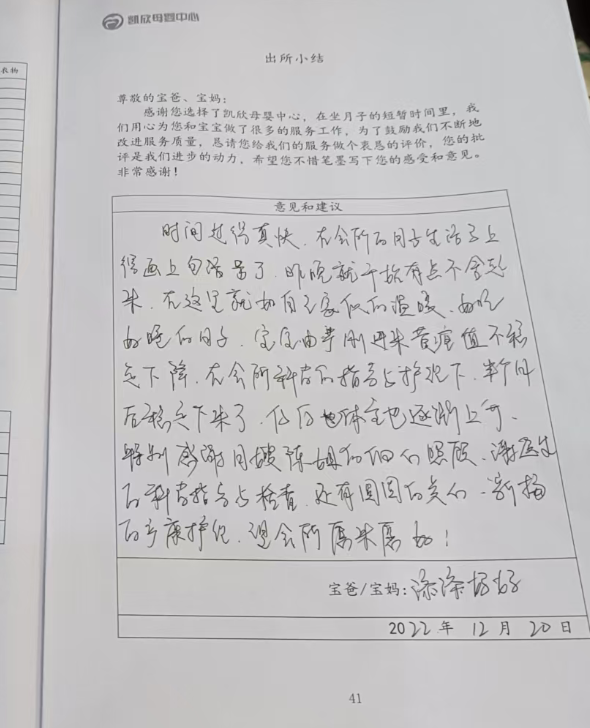 凯欣母婴中心
出所小结
尊敬的宝爸、宝妈：
感谢您选择了凯欣母婴中心，在坐月子的短暂时间里，我
们用心为您和宝宝做了很多的服务工作，为了鼓励我们不断地
改进服务质量，恳请您给我们的服务做个衷恳的评价，您的批
评是我们进步的动力，希望您不惜笔墨写下您的感受和意见。
非常感谢！
意见和建议
时间过得真快，在会所的月子生活马上
得画上句活号了，昨晚就开始有点不舍起
来，在这里就如自己家似的温暖，好吃
好睡的日子，宝宝由刚进来黄疸值不稳
定下降，在会所科学的指导与护理下，半个月
后稳定下来了，以后体重也逐渐上升，
特别感谢月嫂陈姐的照顾，谢医生
的科学指导与检查，还有圆圆的
的产康护理，祝会所愈来愈好！
宝爸/宝妈：
2022 年 12 月 20 日
41